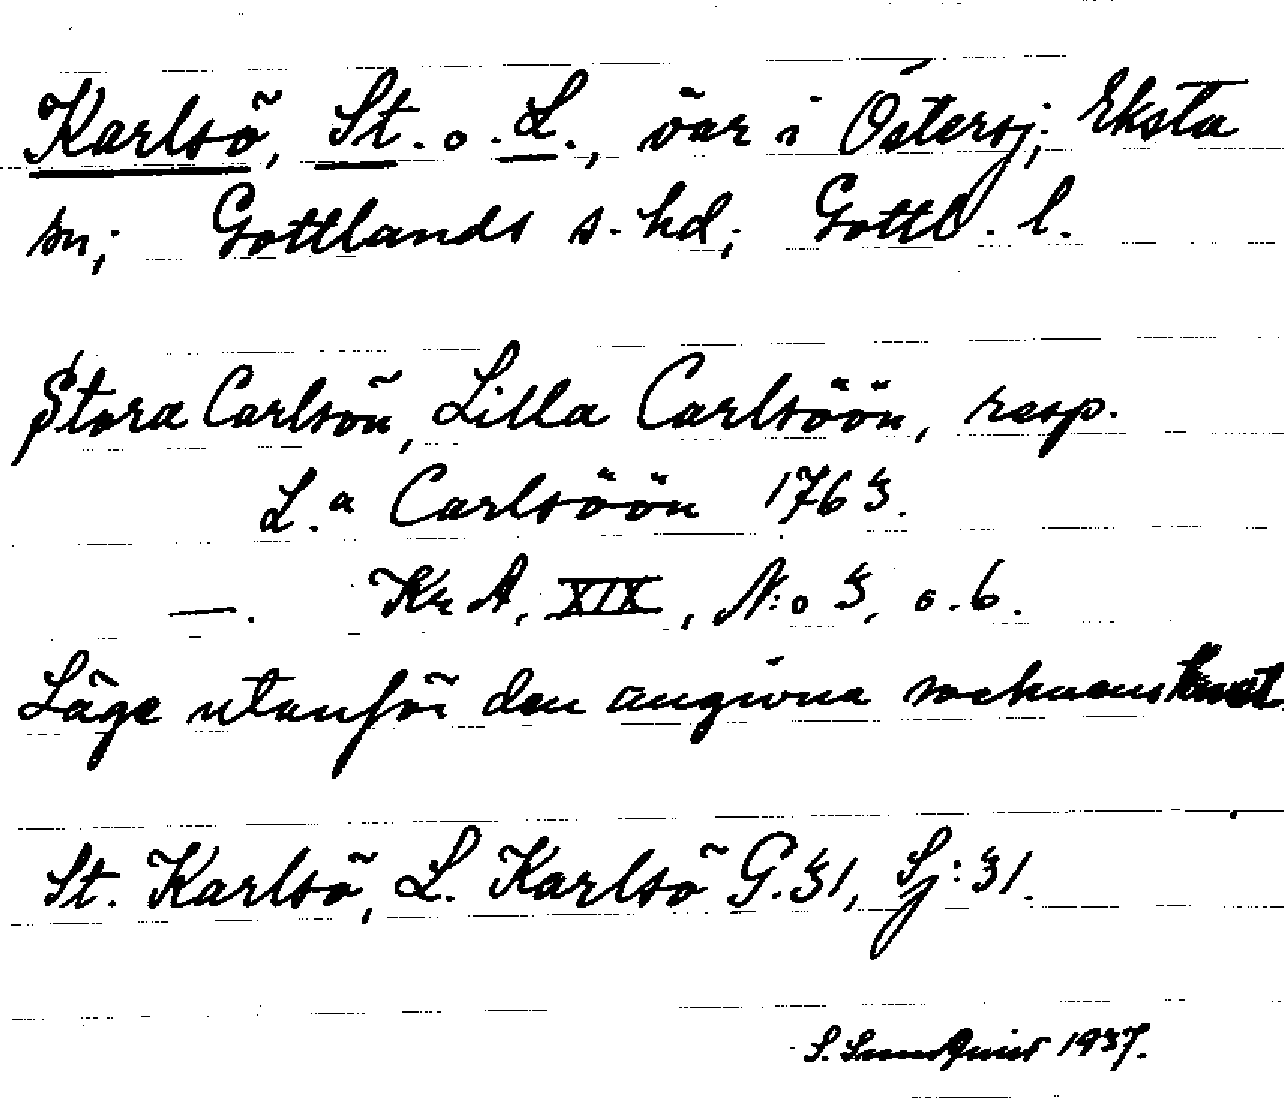 Karlsö, St. o. L., öar i Östersj; Eksta
sn; Gottlands s. hd; Gottl. l.
Stora Carlsön, Lilla Carlsöön, resp.
L.a Carlsöön 1763.
—. Kr A, XIX, N:o 3, o. 6.
Läge utanför den angivna socknens kust.
St. Karlsö, L. Karlsö G. 31, Sj: 31.
S. Sundquist 1937.